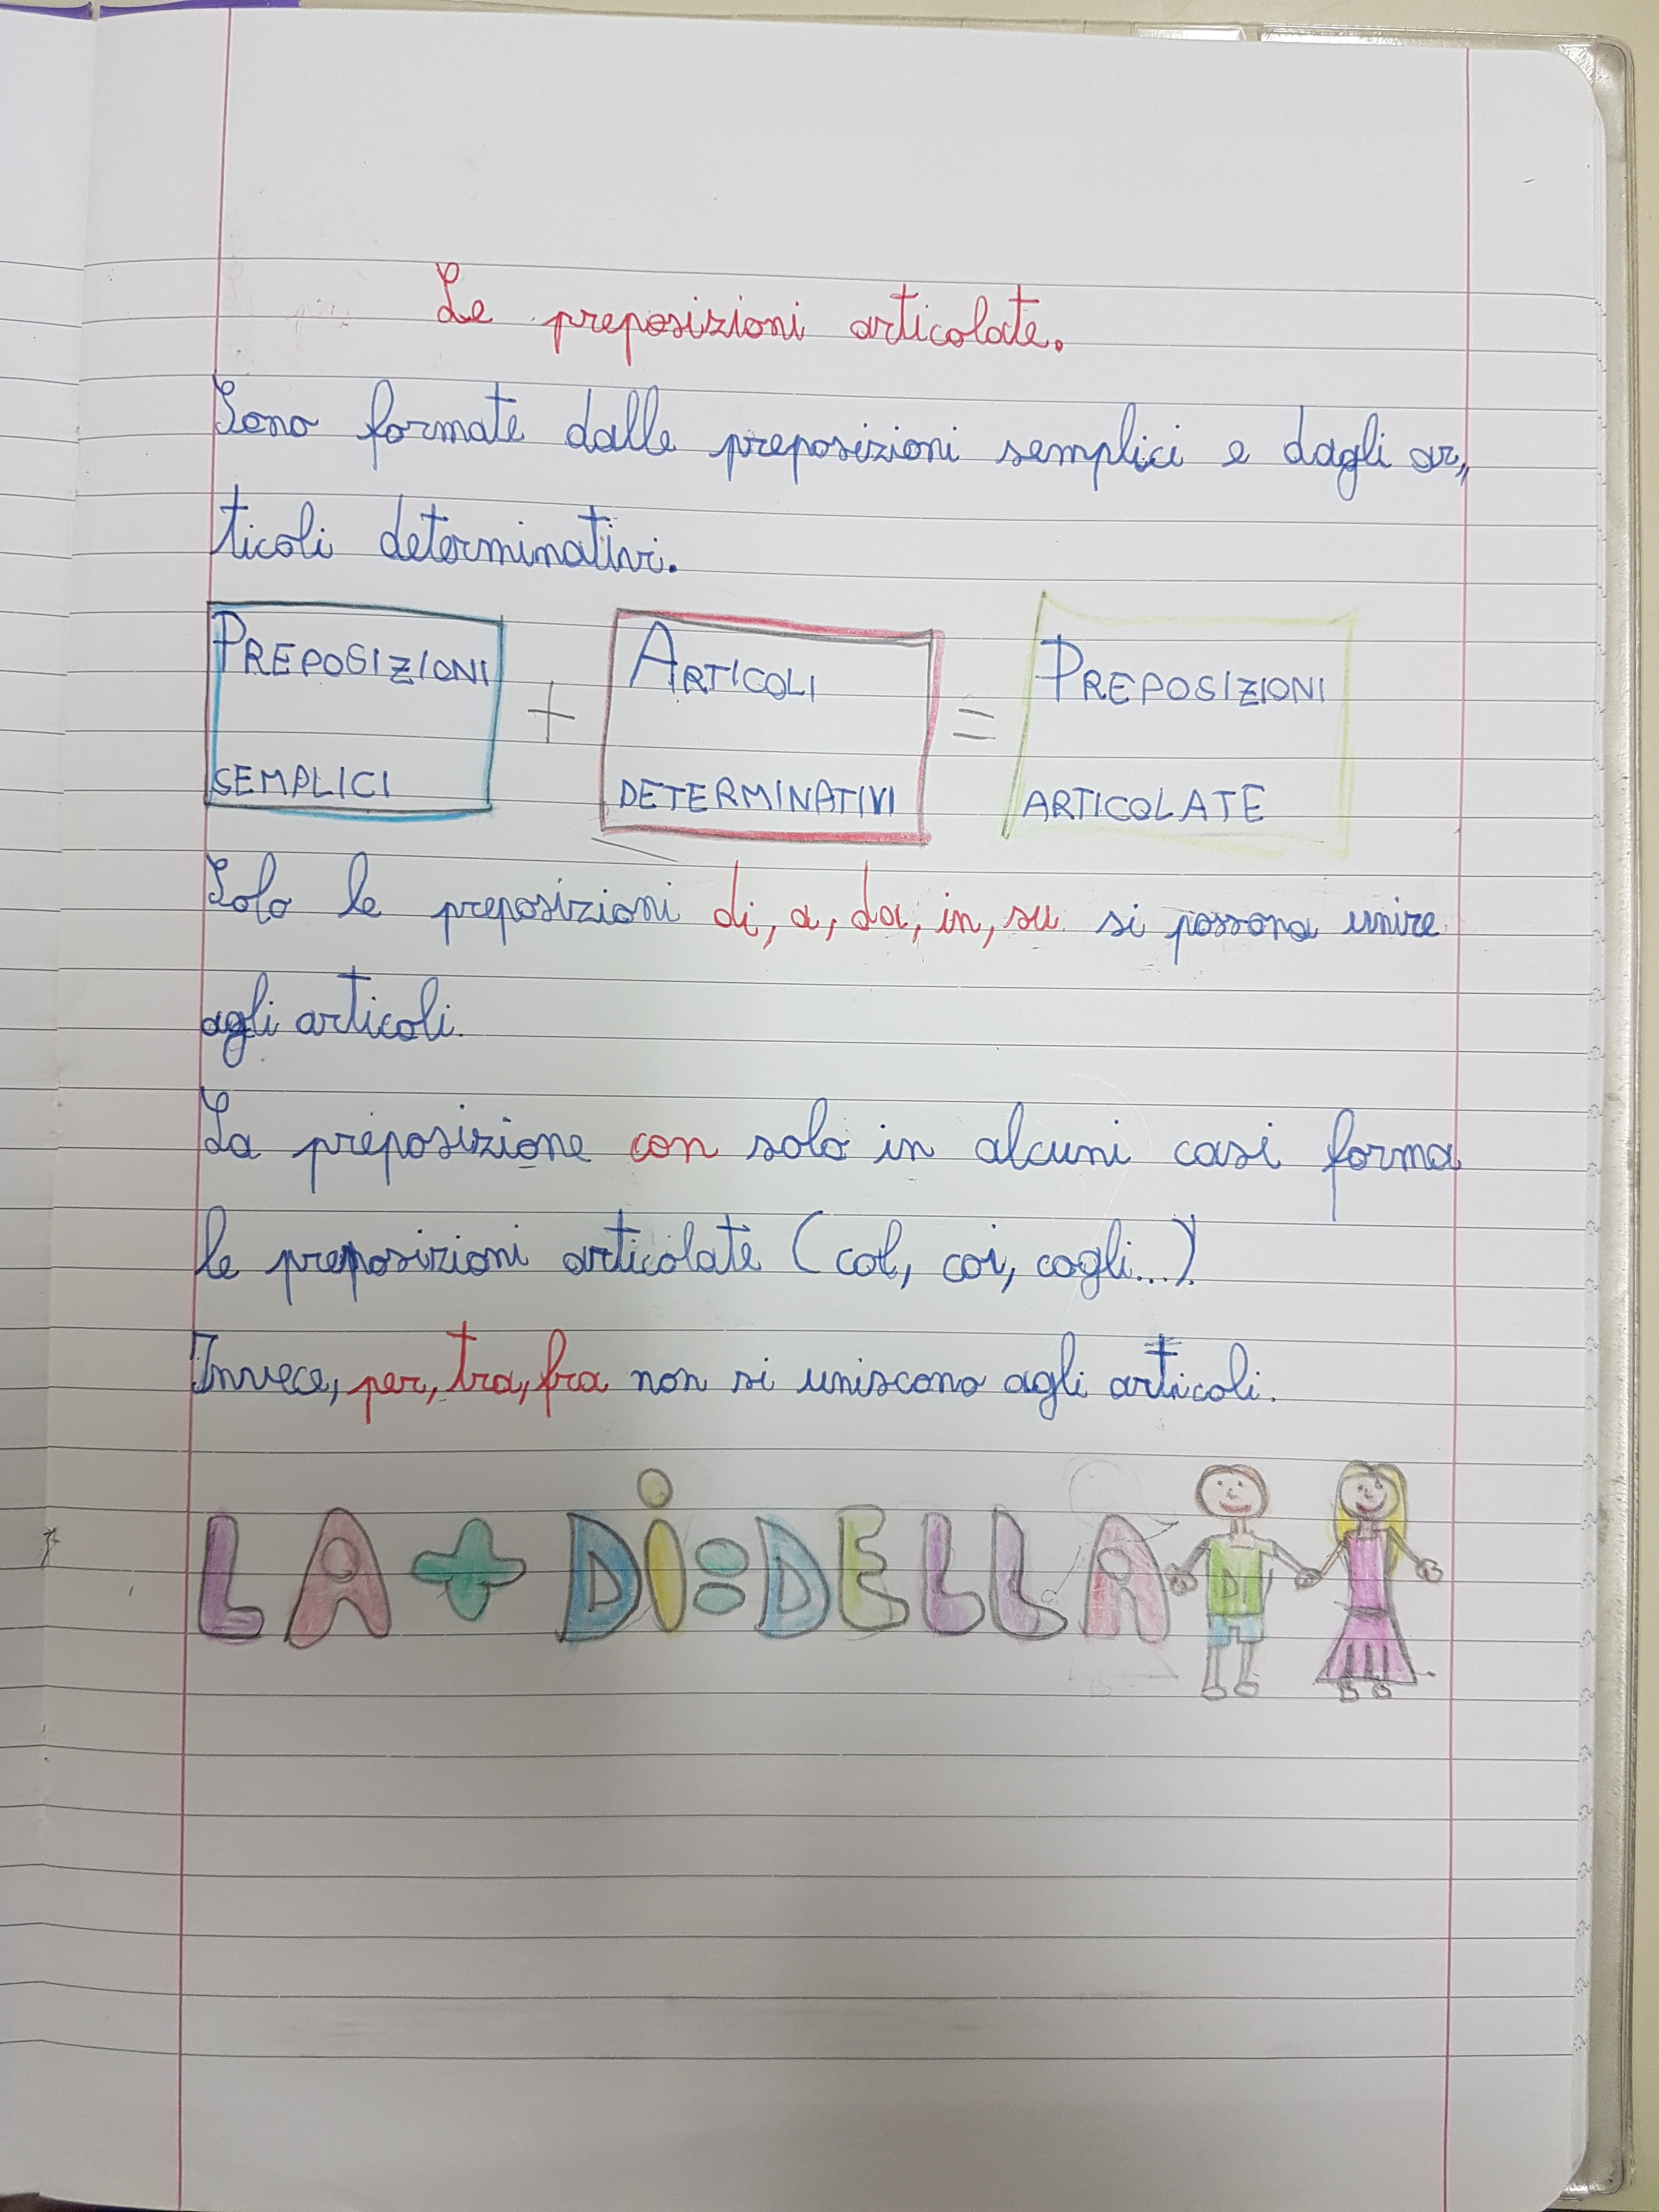 Le preposizioni articolate.
Sono formate dalle preposizioni semplici e dagli ar,,
ticoli determinativi.
PREPOSIZIONI SEMPLICI + ARTICOLI DETERMINATIVI = PREPOSIZIONI ARTICOLATE
Solo le preposizioni di, a, da, in, su si possono unire
agli articoli.
La preposizione con solo in alcuni casi forma
le preposizioni articolate (col, coi, cogli...)
Invece, per, tra, fra non si uniscono agli articoli.
LA + Di = DELLA DI